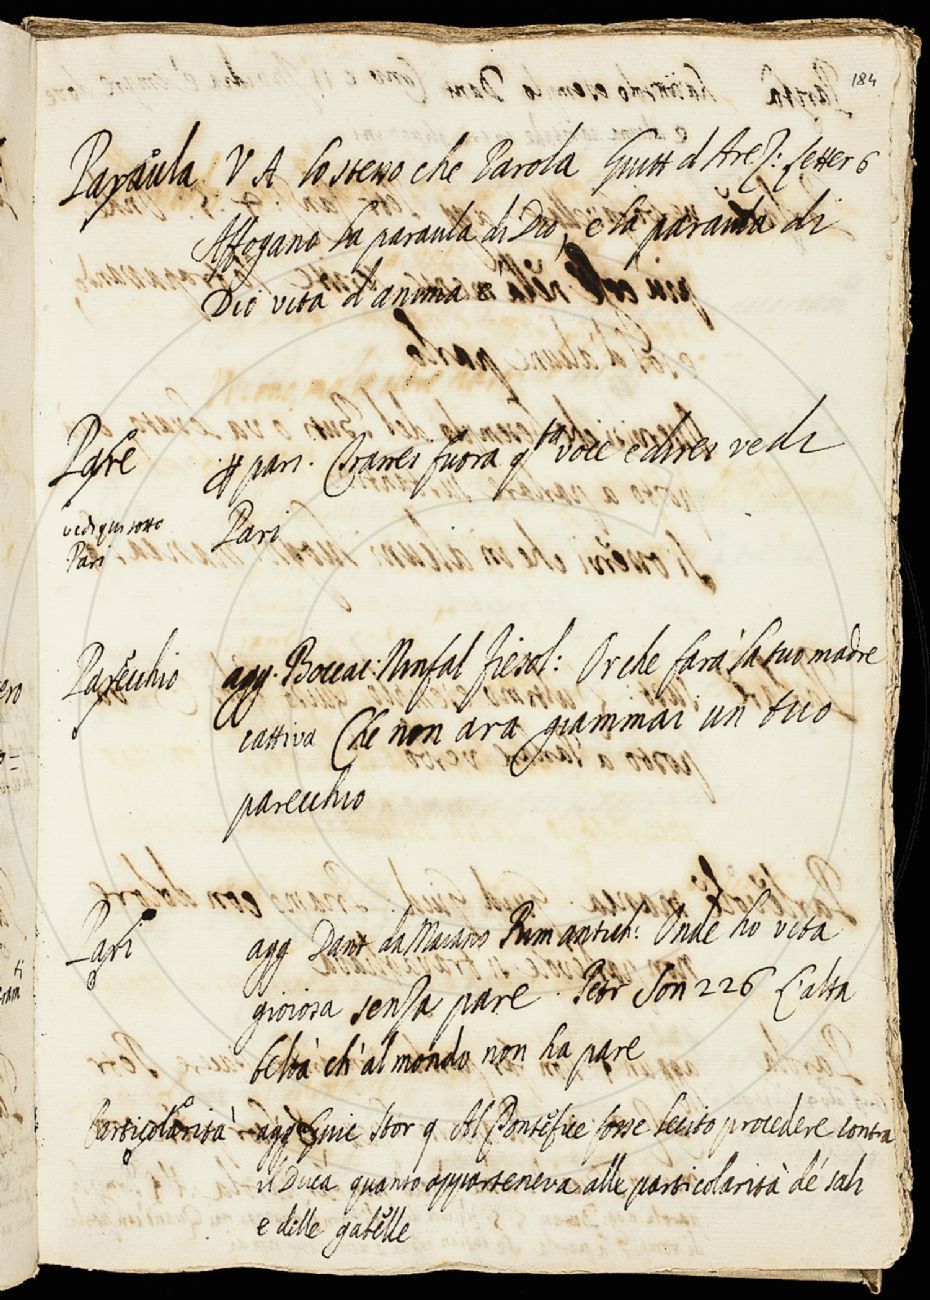 184
Paraula V A Lo stesso che Parola Guitt d'Arez: Letter 6
Affogano la paraula di Dio, e la paraula di
Dio vita d'anima è
Pare pari. Trarrei fuora qta voce e direi vedi
vedi qui sotto Pari
Pari
Parecchio agg. Boccac. Ninfal Fiesol: Or che farà la tuo madre
cattiva Che non arà giammai un tuo
parecchio
Pari agg Dant da Maiano Rim antich: Onde ho vita
gioiosa senza pare. Petr Son 226 L'alta
beltà ch'al mondo non ha pare
Particolarità agg Guic Stor 9 Al Pontefice fosse lecito procedere contra
il Duca quanto apparteneva alle particolarità de' sali
e delle gabelle